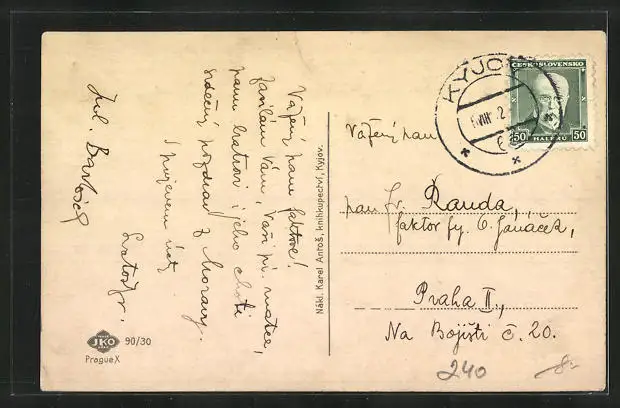 Vážený pane faktore!
Zasílám Vám, Vaší pí. matce,
panu bratrovi i jeho choti
srdečný pozdrav z Moravy.
S projevem úcty
Jul. Bartošek
Nákl. Karel Antoš, knihkupectví, Kyjov.
JKO
90/30
Prague X
KYJOV
ČESKOSLOVENSKO
50 50
HALÉŘŮ
Vážený pan
pan Fr. Řanda,
faktor fy. O. Janáček,
Praha II.,
Na Bojišti č. 20.
240
8-